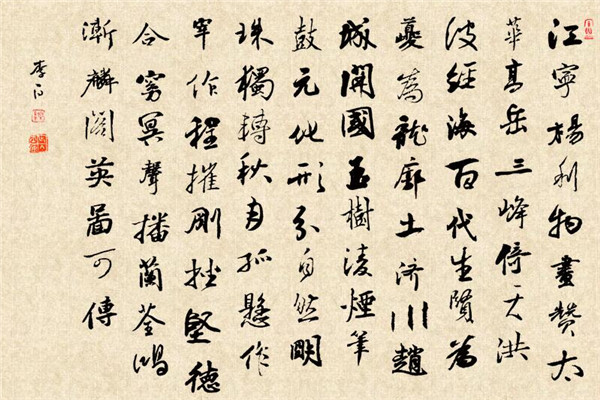 江寧楊利物畫贊太
華高岳三峰倚天洪
波經海百代生賢為
夔為龍廓土濟川趙
城開國玉樹凌煙筆
鼓元化形分自然明
珠獨轉秋月孤懸作
宰作程摧剛挫堅德
合窈冥聲播蘭荃鴻
漸麟閣英圖可傳
李白